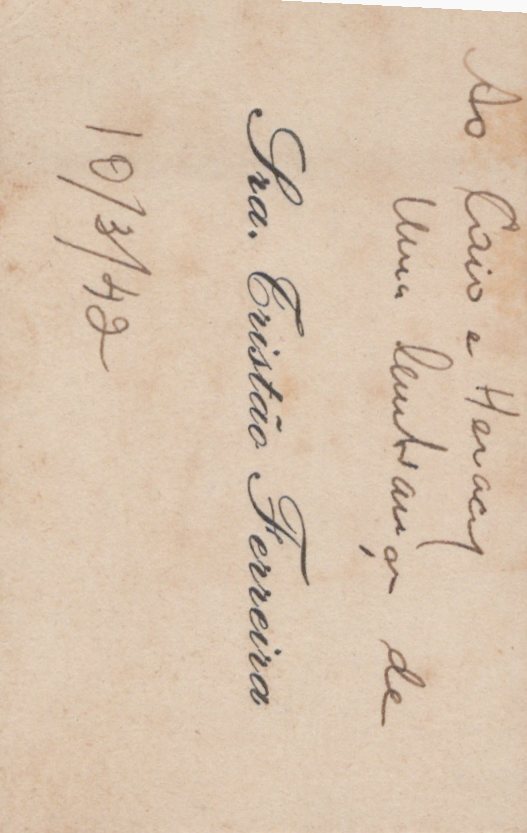 Ao Caio e Heracy
Uma lembrança de
Sra. Tristão Ferreira
10/3/42